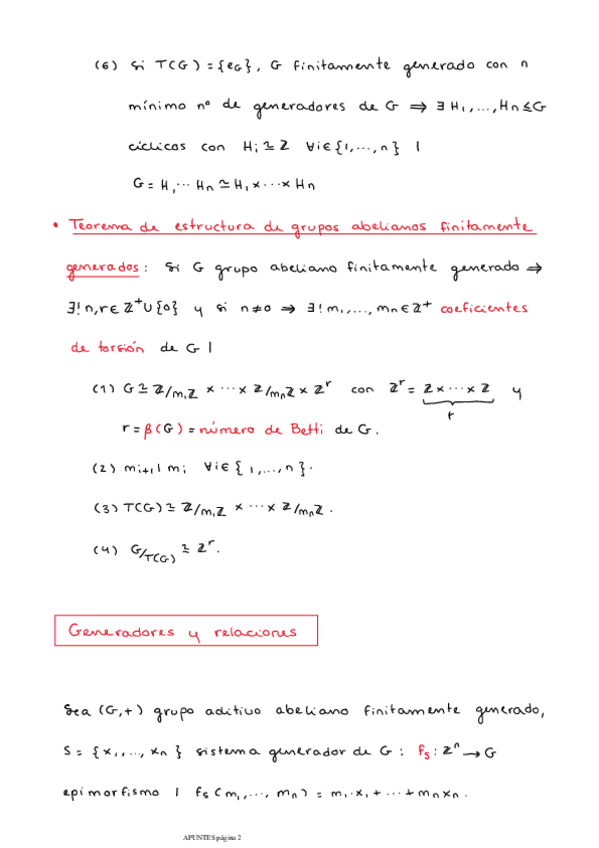 (6) Si T(G) = {e_G}, G finitamente generado con n
mínimo nº de generadores de G ⇒ ∃ H₁,...,Hₙ ≤ G
cíclicos con Hᵢ ≃ ℤ ∀i∈{1,...,n} |
G = H₁ ··· Hₙ ≃ H₁ × ··· × Hₙ
• Teorema de estructura de grupos abelianos finitamente
generados: Si G grupo abeliano finitamente generado ⇒
∃! n,r ∈ ℤ⁺∪{0} y si n≠0 ⇒ ∃! m₁,...,mₙ ∈ ℤ⁺ coeficientes
de torsión de G |
(1) G ≃ ℤ/m₁ℤ × ··· × ℤ/mₙℤ × ℤʳ con ℤʳ = ℤ × ··· × ℤ y
r
r = β(G) = número de Betti de G.
(2) mᵢ₊₁ | mᵢ ∀i∈{1,...,n}.
(3) T(G) ≃ ℤ/m₁ℤ × ··· × ℤ/mₙℤ.
(4) G/T(G) ≃ ℤʳ.
Generadores y relaciones
Sea (G,+) grupo aditivo abeliano finitamente generado,
S = {x₁,..., xₙ} sistema generador de G : f_S : ℤⁿ → G
epimorfismo | f_S (m₁,..., mₙ) = m₁·x₁ + ··· + mₙxₙ.
APUNTES página 2